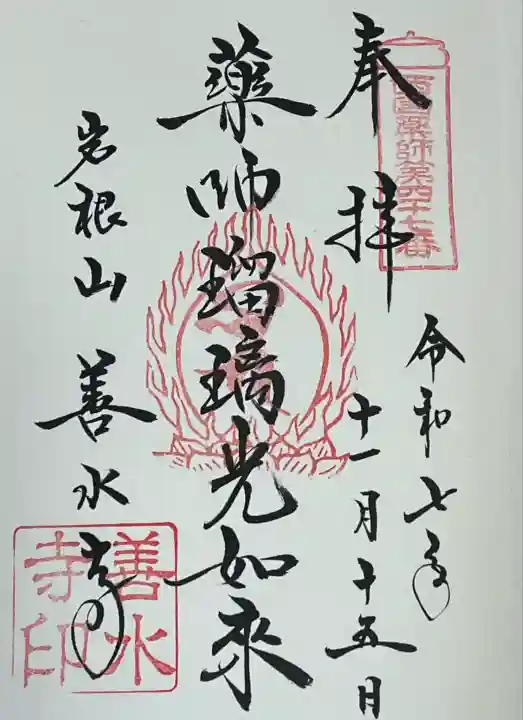 奉拝
西国薬師第四十七番
令和七年
十一月十五日
薬師瑠璃光如来
岩根山 善水寺
善水寺印